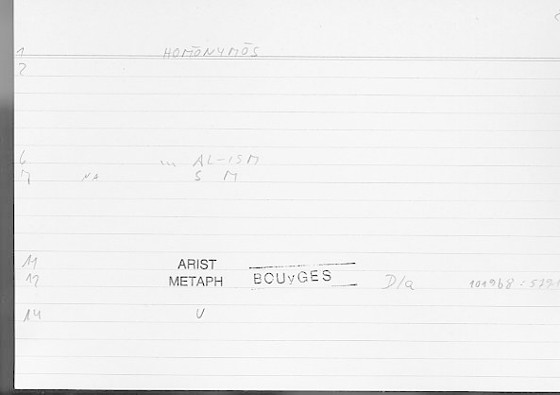 1 HOMŌNYMŌS
2
6 ... AL-ISM
7 NA S M
11 ARIST
12 METAPH BOUyGES D/a
14 U